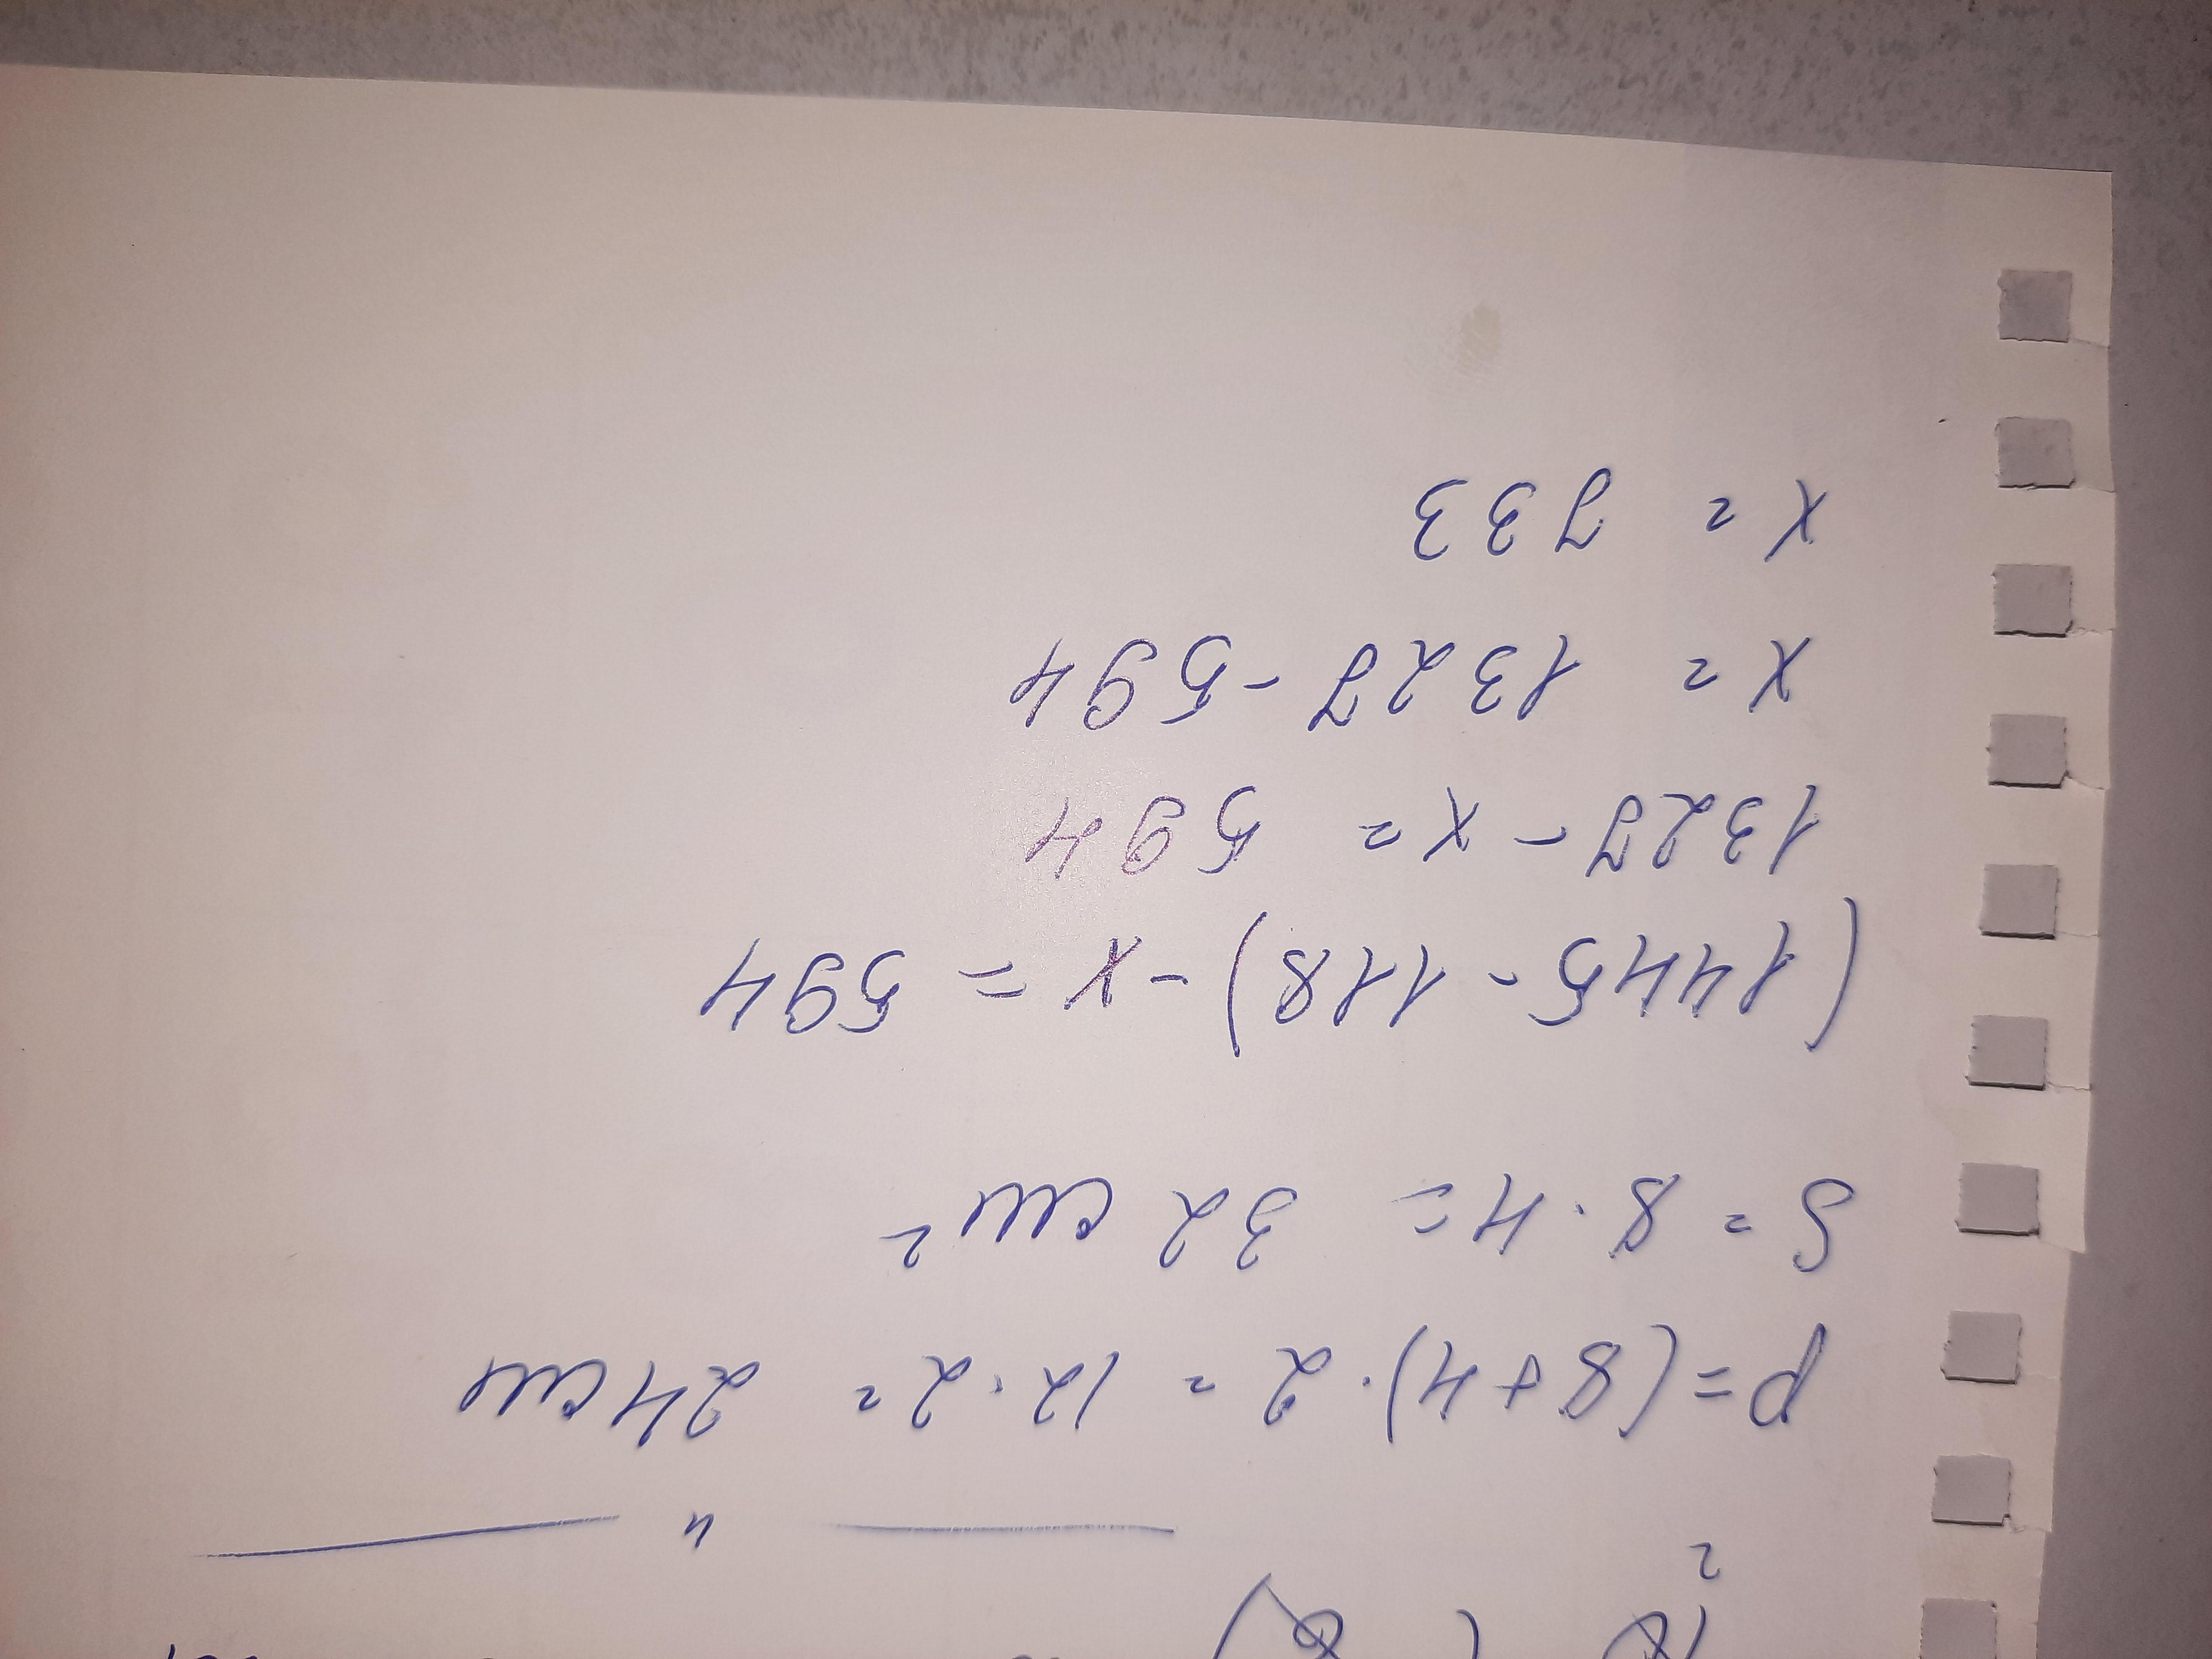 — " —
P = (8 + 4) · 2 = 12 · 2 = 24 см
S = 8 · 4 = 32 см²
(1445 - 118) - x = 594
1327 - x = 594
x = 1327 - 594
x = 733